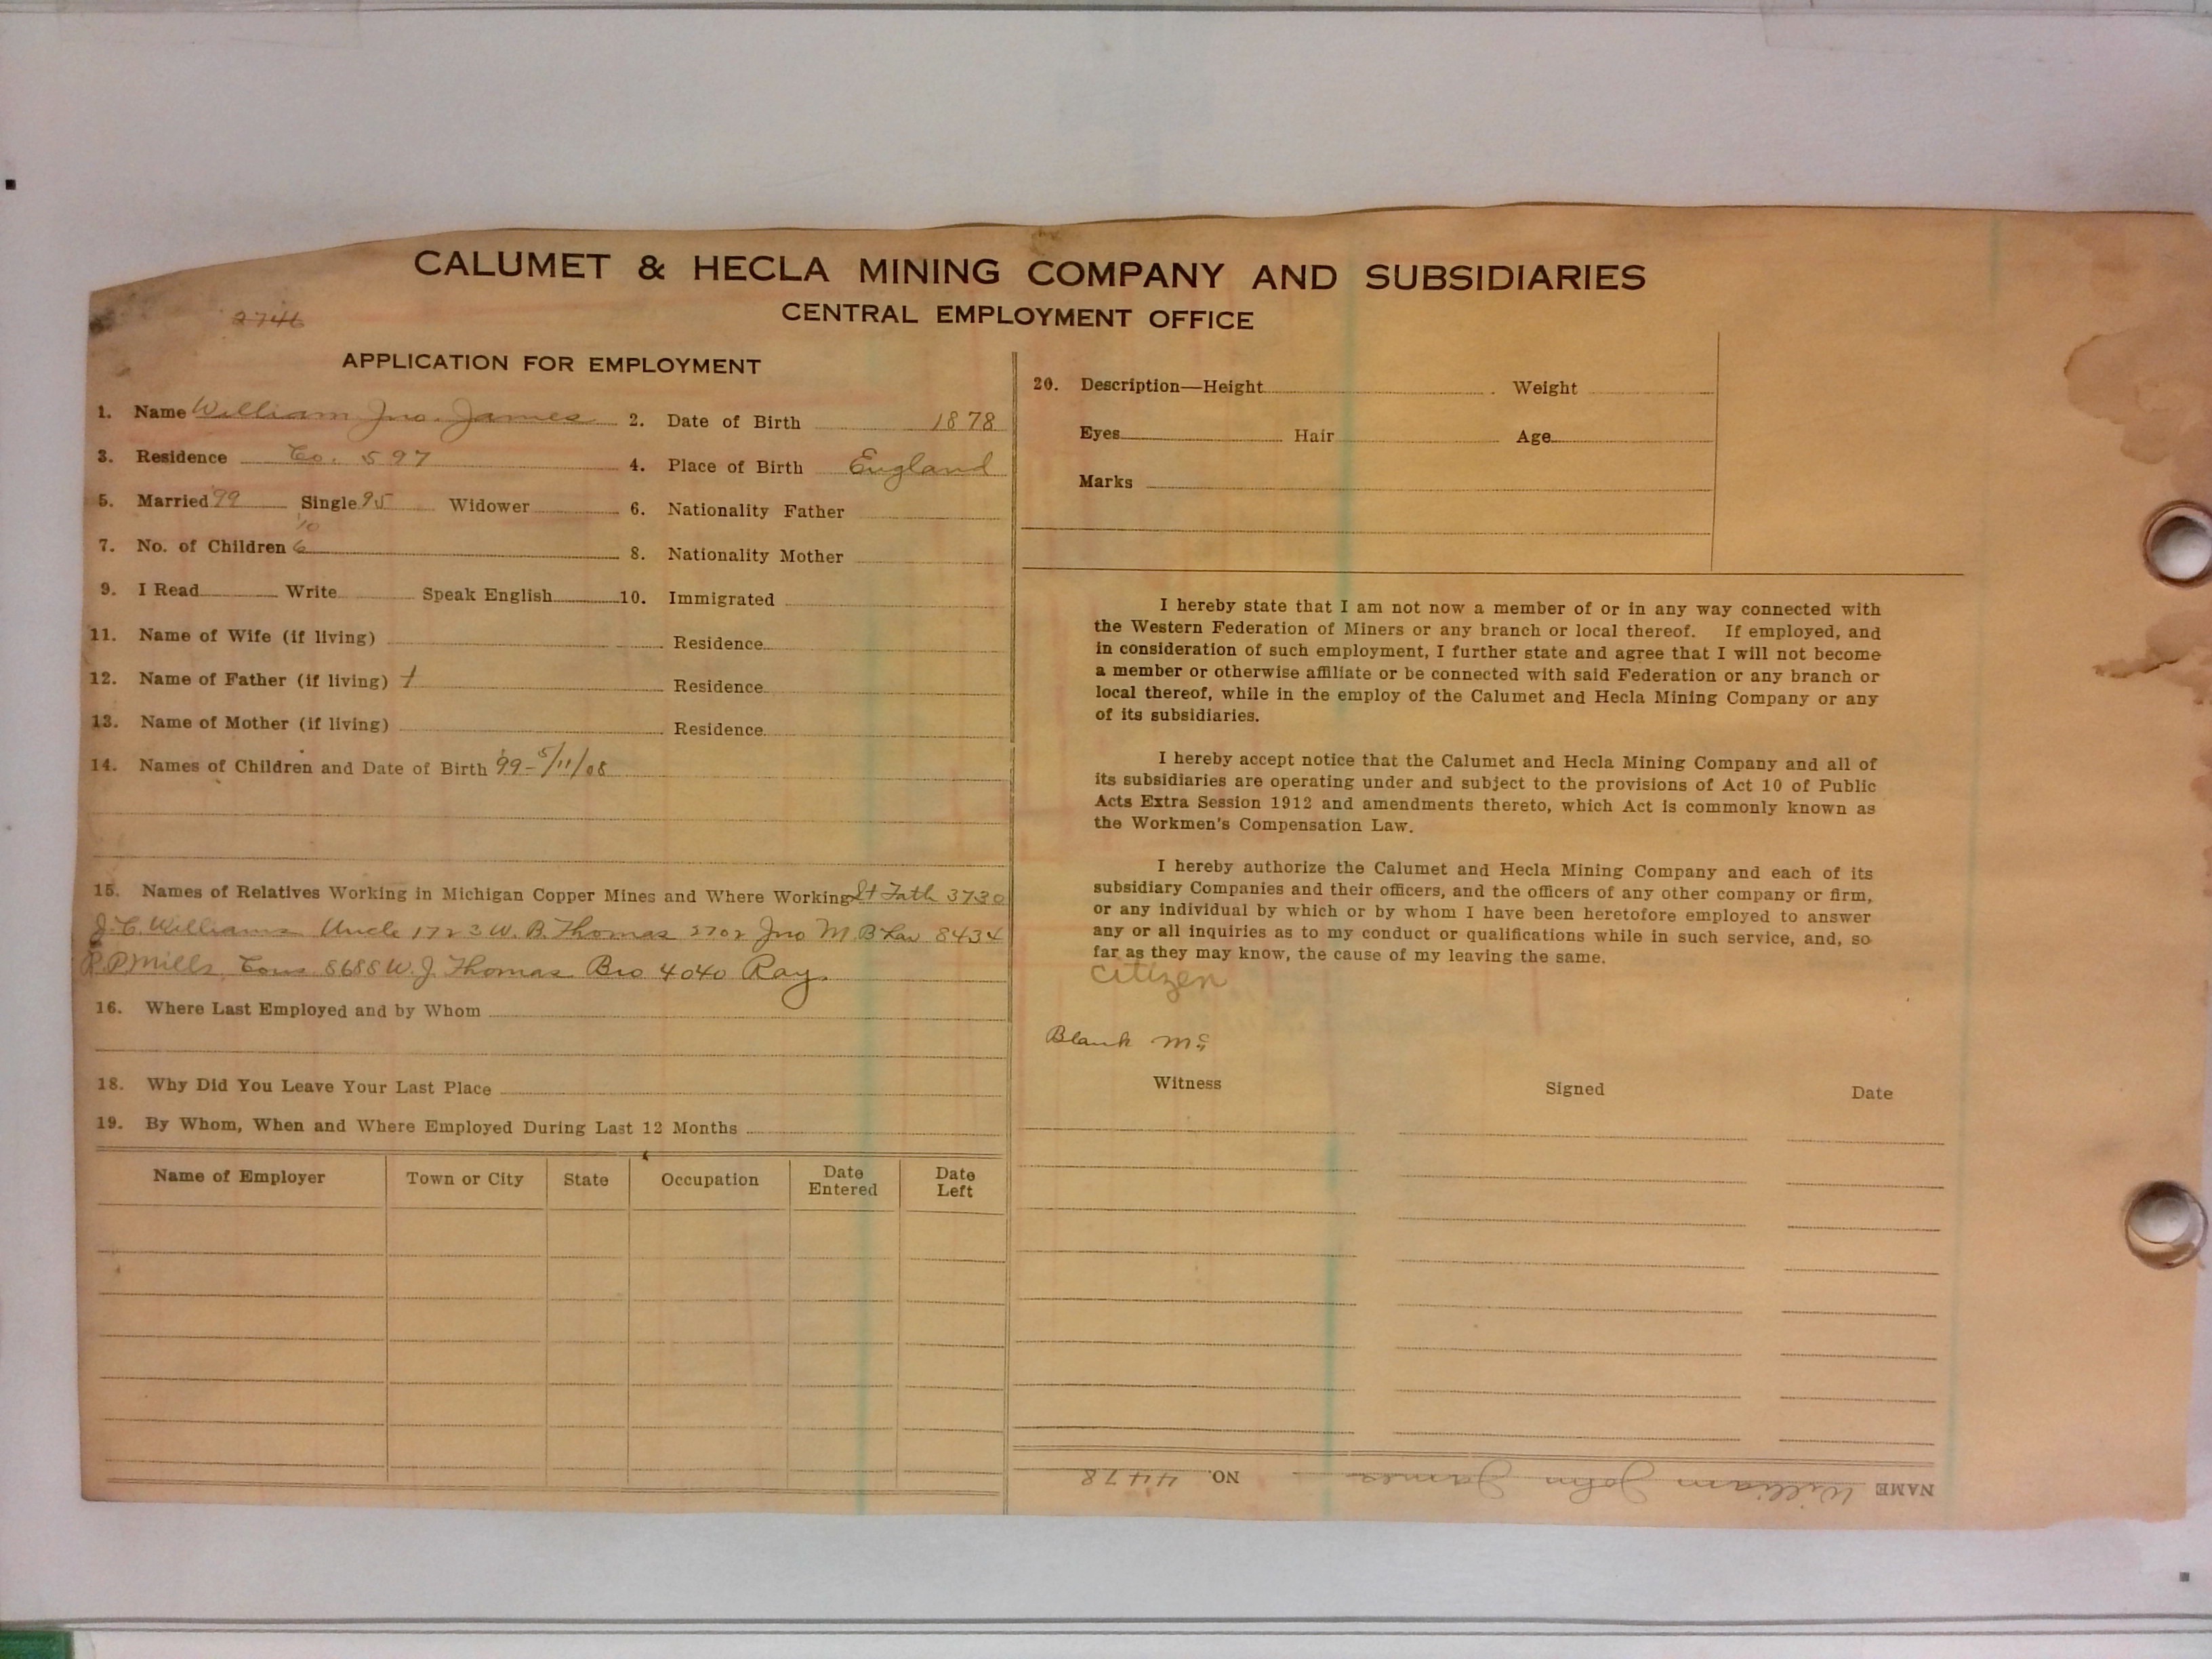 CALUMET & HECLA MINING COMPANY AND SUBSIDIARIES
CENTRAL EMPLOYMENT OFFICE
2746
APPLICATION FOR EMPLOYMENT
1. Name William Jno. James 2. Date of Birth 1878
3. Residence Co. 597 4. Place of Birth England
5. Married 99 Single 95 Widower 6. Nationality Father
'10
7. No. of Children 6 8. Nationality Mother
9. I Read Write Speak English 10. Immigrated
11. Name of Wife (if living) Residence
12. Name of Father (if living) † Residence
13. Name of Mother (if living) Residence
14. Names of Children and Date of Birth 99-5/11/08
15. Names of Relatives Working in Michigan Copper Mines and Where Working St Fath 3730
J. C. Williams Uncle 1723 W. B. Thomas 2702 Jno M. B Law 8434
P. P Mills Cous 8688 W. J. Thomas Bro 4040 Ray.
16. Where Last Employed and by Whom
18. Why Did You Leave Your Last Place
19. By Whom, When and Where Employed During Last 12 Months
Name of Employer Town or City State Occupation Date Entered Date Left
20. Description—Height Weight
Eyes Hair Age
Marks
I hereby state that I am not now a member of or in any way connected with
the Western Federation of Miners or any branch or local thereof. If employed, and
in consideration of such employment, I further state and agree that I will not become
a member or otherwise affiliate or be connected with said Federation or any branch or
local thereof, while in the employ of the Calumet and Hecla Mining Company or any
of its subsidiaries.
I hereby accept notice that the Calumet and Hecla Mining Company and all of
its subsidiaries are operating under and subject to the provisions of Act 10 of Public
Acts Extra Session 1912 and amendments thereto, which Act is commonly known as
the Workmen's Compensation Law.
I hereby authorize the Calumet and Hecla Mining Company and each of its
subsidiary Companies and their officers, and the officers of any other company or firm,
or any individual by which or by whom I have been heretofore employed to answer
any or all inquiries as to my conduct or qualifications while in such service, and, so
far as they may know, the cause of my leaving the same.
citizen
Blank
Witness Signed Date
NAME William John James NO. 4478